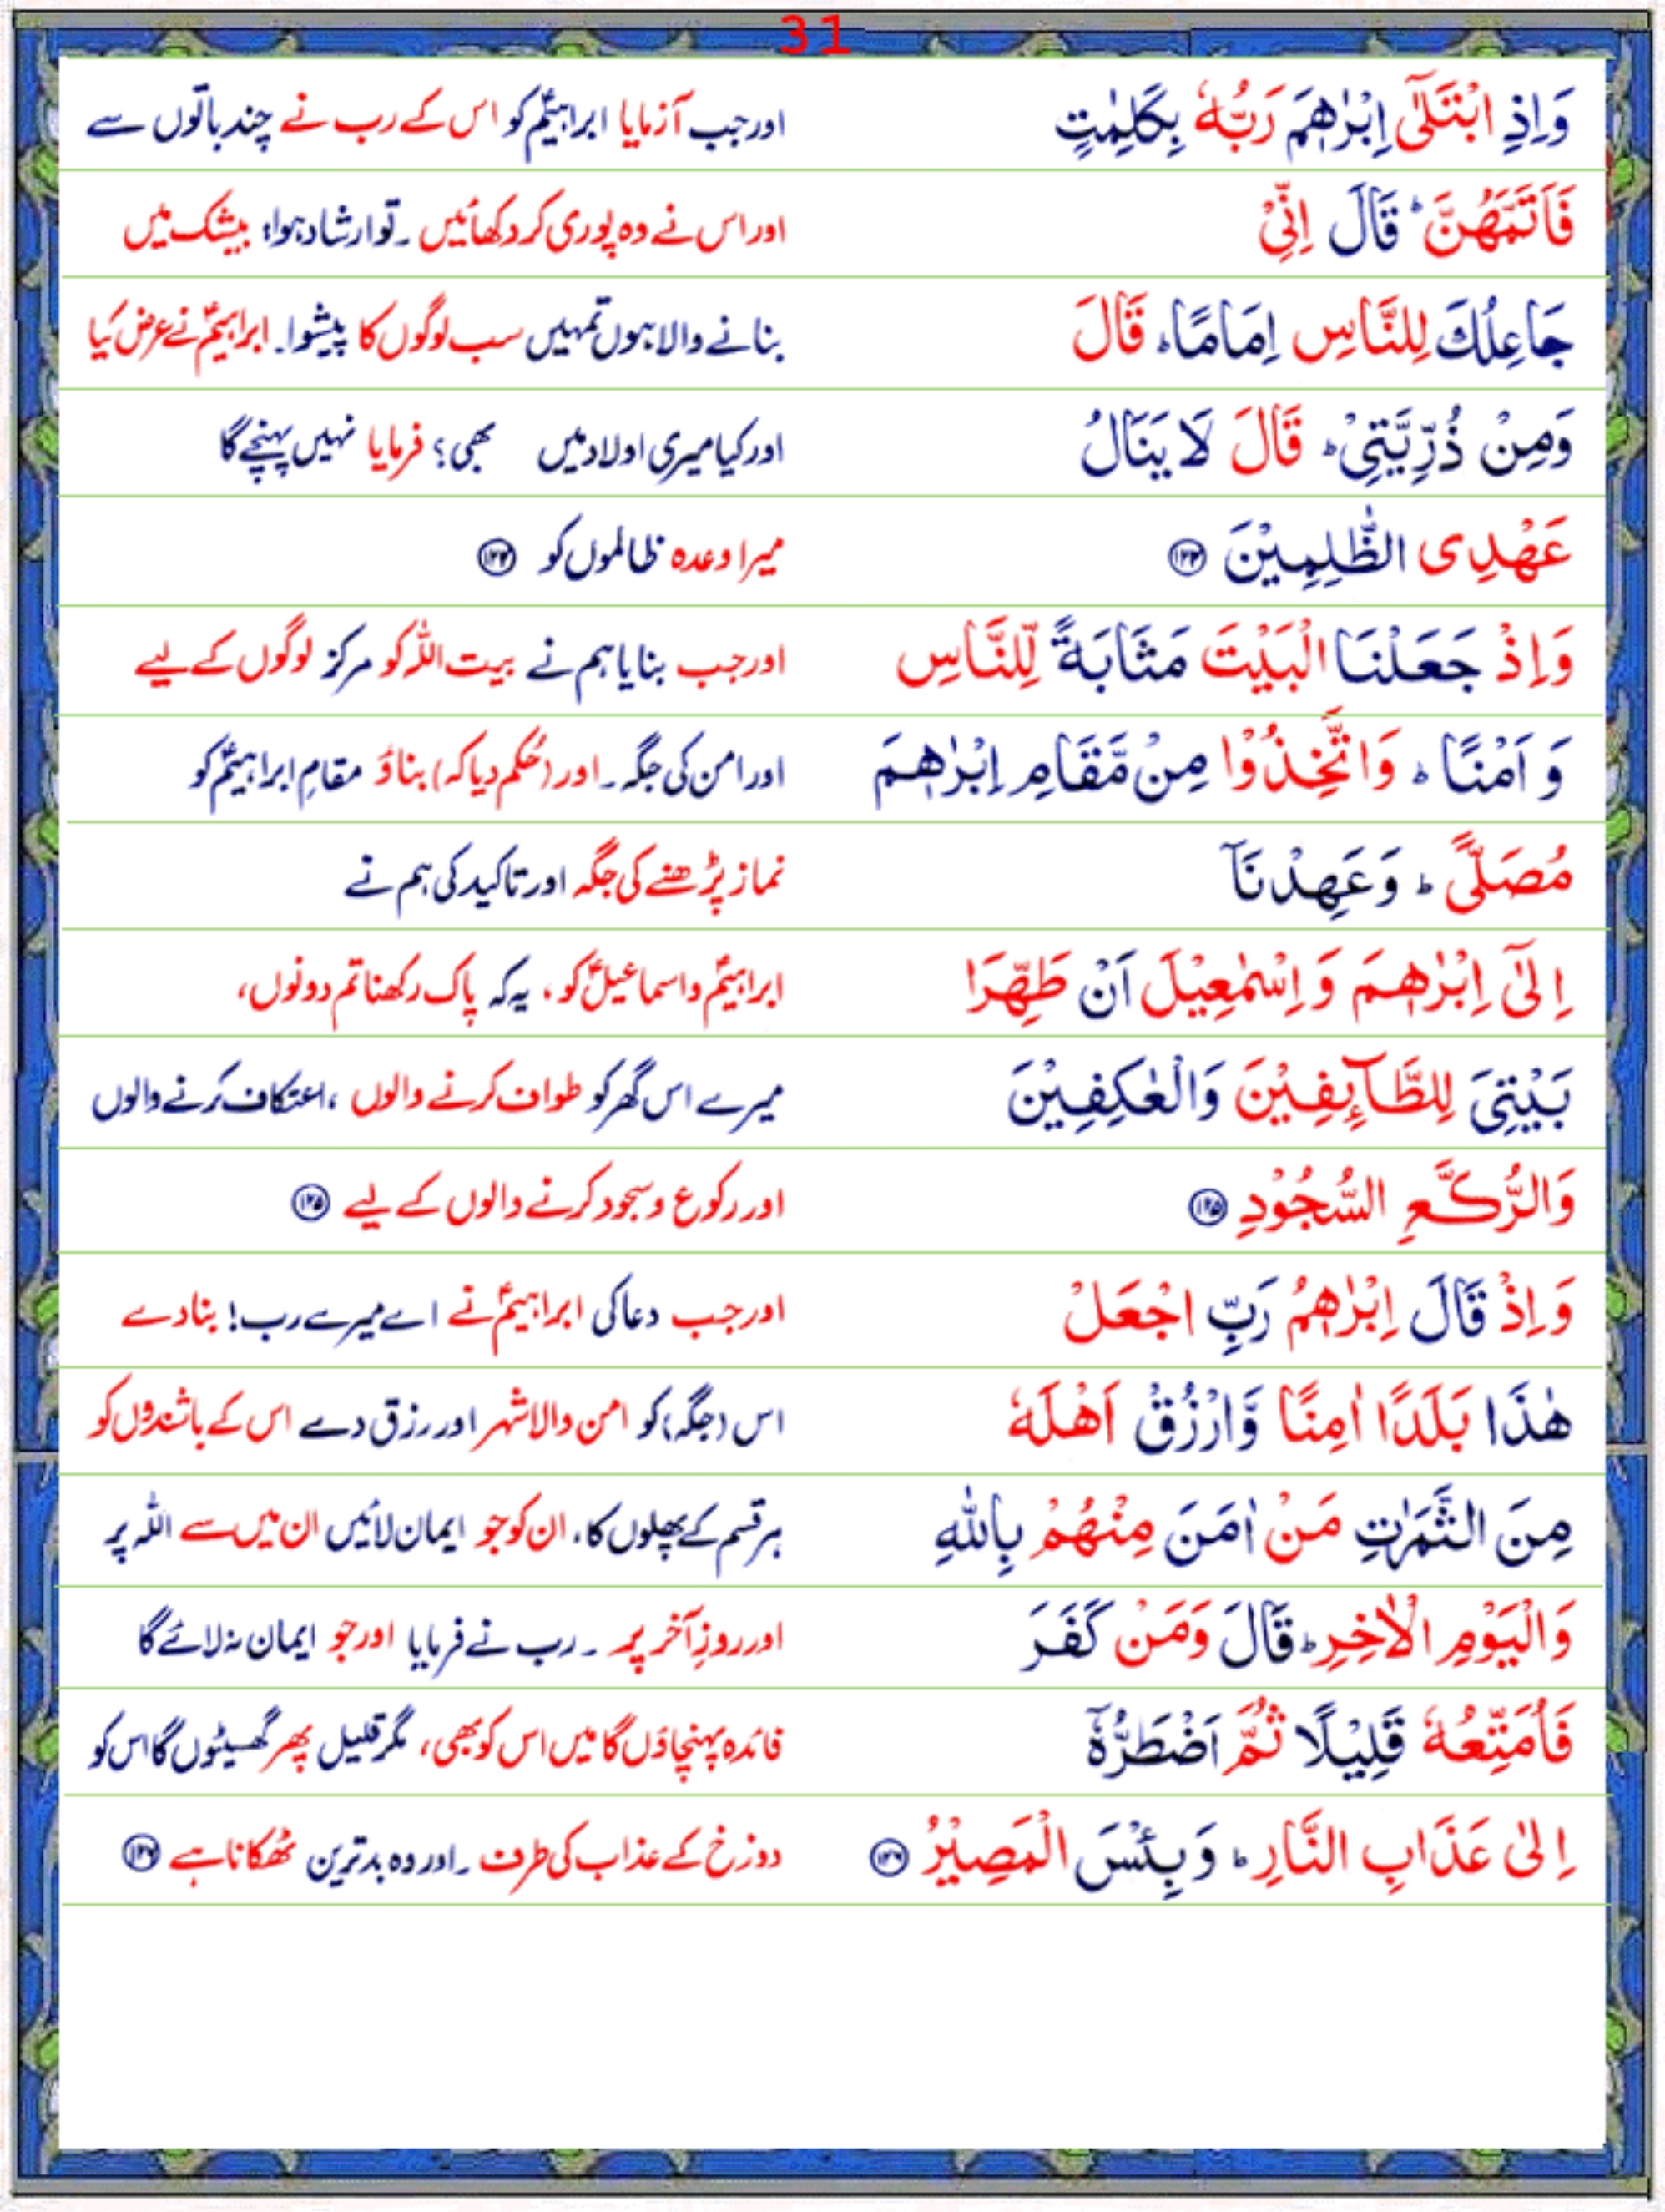 31
وَاِذِ ابْتَلٰٓى اِبْرٰهٖمَ رَبُّهٗ بِكَلِمٰتٍ اور جب آزمایا ابراہیمؑ کو اس کے رب نے چند باتوں سے
فَاَتَمَّهُنَّ ؕ قَالَ اِنِّىْ اور اس نے وہ پوری کر دکھائیں ۔ تو ارشاد ہوا؛ بیشک میں
جَاعِلُكَ لِلنَّاسِ اِمَامًا ؕ قَالَ بنانے والا ہوں تمہیں سب لوگوں کا پیشوا۔ ابراہیمؑ نے عرض کیا
وَمِنْ ذُرِّيَّتِىْ ؕ قَالَ لَا يَنَالُ اور کیا میری اولاد میں بھی؟ فرمایا نہیں پہنچے گا
عَهْدِى الظّٰلِمِيْنَ ۝۱۲۴ میرا وعدہ ظالموں کو ۝۱۲۴
وَاِذْ جَعَلْنَا الْبَيْتَ مَثَابَةً لِّلنَّاسِ اور جب بنایا ہم نے بیت اللہ کو مرکز لوگوں کے لیے
وَ اَمْنًا ؕ وَاتَّخِذُوْا مِنْ مَّقَامِ اِبْرٰهٖمَ اور امن کی جگہ ۔ اور (حُکم دیا کہ) بناؤ مقامِ ابراہیمؑ کو
مُصَلًّى ؕ وَعَهِدْنَآ نماز پڑھنے کی جگہ اور تاکید کی ہم نے
اِلٰٓى اِبْرٰهٖمَ وَاِسْمٰعِيْلَ اَنْ طَهِّرَا ابراہیمؑ و اسماعیلؑ کو ، یہ کہ پاک رکھنا تم دونوں،
بَيْتِىَ لِلطَّآئِفِيْنَ وَالْعٰكِفِيْنَ میرے اس گھر کو طواف کرنے والوں ،اعتکاف کرنے والوں
وَالرُّكَّعِ السُّجُوْدِ ۝۱۲۵ اور رکوع و سجود کرنے والوں کے لیے ۝۱۲۵
وَاِذْ قَالَ اِبْرٰهٖمُ رَبِّ اجْعَلْ اور جب دعا کی ابراہیمؑ نے اے میرے رب! بنا دے
هٰذَا بَلَدًا اٰمِنًا وَّارْزُقْ اَهْلَهٗ اس (جگہ) کو امن والا شہر اور رزق دے اس کے باشندوں کو
مِنَ الثَّمَرٰتِ مَنْ اٰمَنَ مِنْهُمْ بِاللّٰهِ ہر قسم کے پھلوں کا، ان کو جو ایمان لائیں ان میں سے اللہ پر
وَالْيَوْمِ الْاٰخِرِ ؕ قَالَ وَمَنْ كَفَرَ اور روزِ آخر پر ۔ رب نے فرمایا اور جو ایمان نہ لائے گا
فَاُمَتِّعُهٗ قَلِيْلًا ثُمَّ اَضْطَرُّهٗٓ فائدہ پہنچاؤں گا میں اس کو بھی، مگر قلیل پھر گھسیٹوں گا اس کو
اِلٰى عَذَابِ النَّارِ ؕ وَبِئْسَ الْمَصِيْرُ ۝۱۲۶ دوزخ کے عذاب کی طرف ۔ اور وہ بدترین ٹھکانا ہے ۝۱۲۶